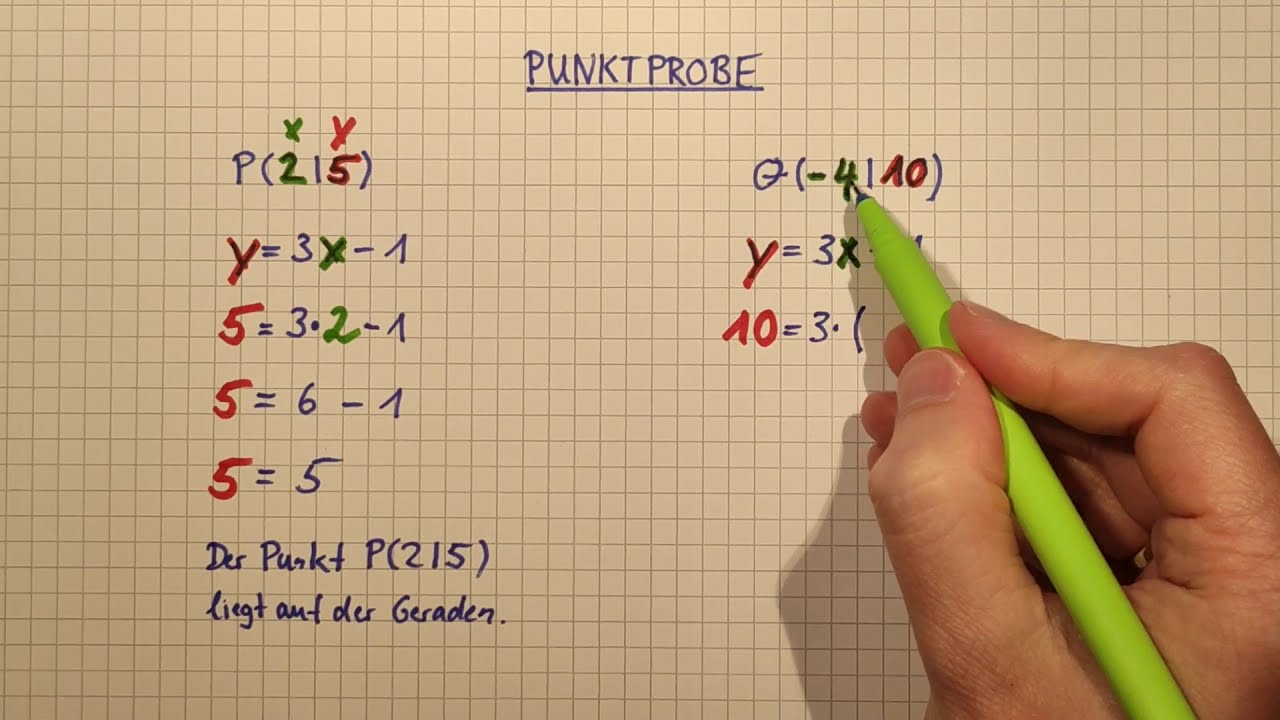 PUNKTPROBE
x y
P(2|5)
y = 3x - 1
5 = 3·2 - 1
5 = 6 - 1
5 = 5
Der Punkt P(2|5)
liegt auf der Geraden.
Q(-4|10)
y = 3x - 1
10 = 3·(